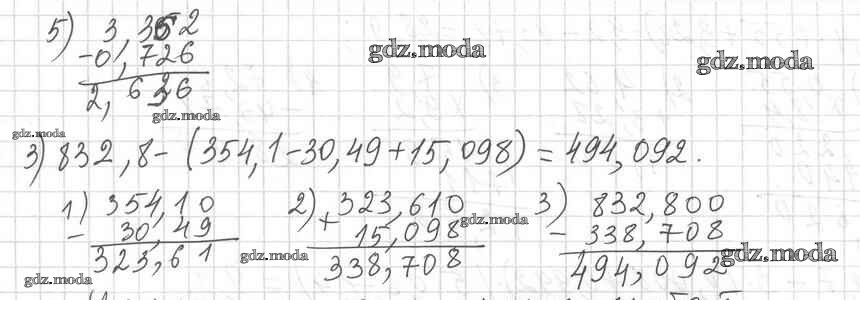 5) 3,352
gdz.moda
-0,726
gdz.moda
2,626
gdz.moda
gdz.moda
3) 832,8-(354,1-30,49+15,098)=494,092.
1) 354,10 2) 323,610 3) 832,800
- 30,49 + 15,098 - 338,708
gdz.moda
323,61 338,708 494,092
gdz.moda gdz.moda
gdz.moda